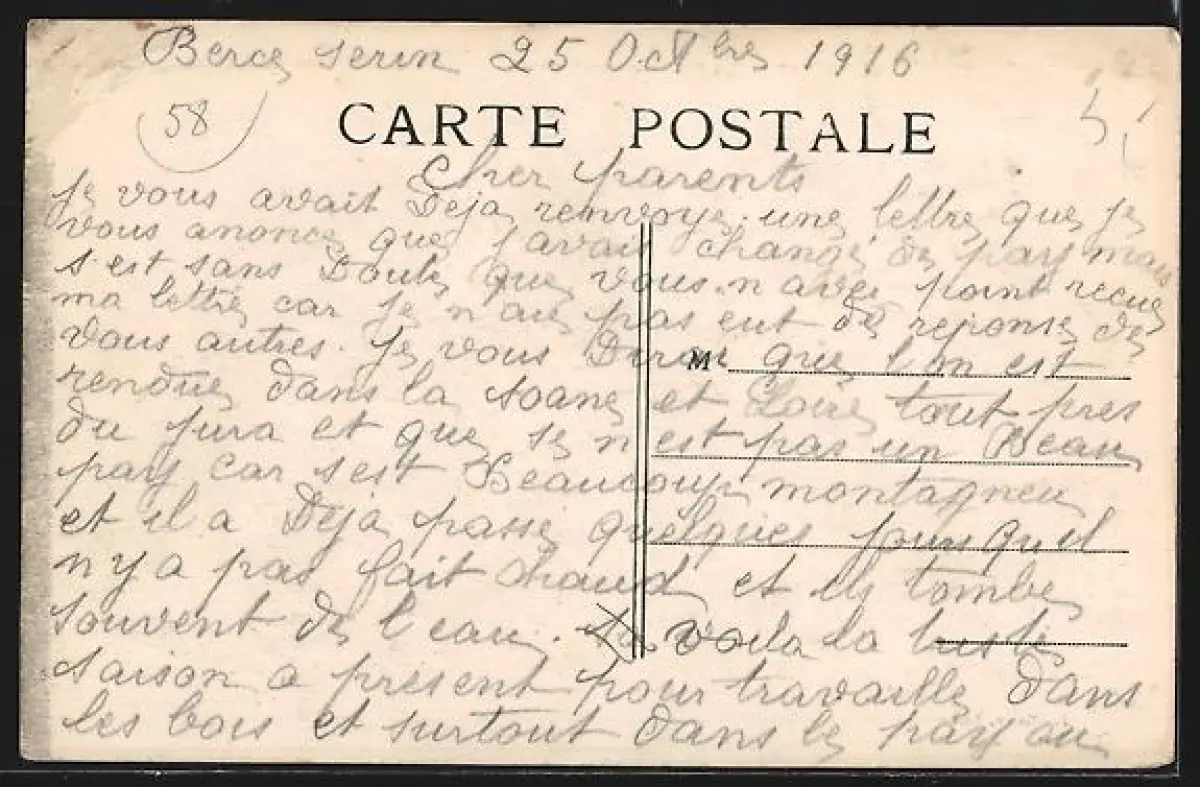 Berce serin 25 Octbres 1916
58
CARTE POSTALE
Cher parents
Je vous avait Deja renvoye une lettre que je
vous anonce que javais change de pays mais
s est sans Doute que vous n avez point recue
ma lettre car je n ai pas eut de reponse de
vous autres. Je vous Dirai que l on est
M
rendue dans la Soane et Loire tout pres
du jura et que se n est pas un Beau
pays car s est Beaucoup montagneu
et il a Deja passe quelques jours qu il
n y a pas fait chaud et ils tombe
souvent de l eau. voila la triste
saison a present pour travaille dans
les bois et surtout dans le pays ou